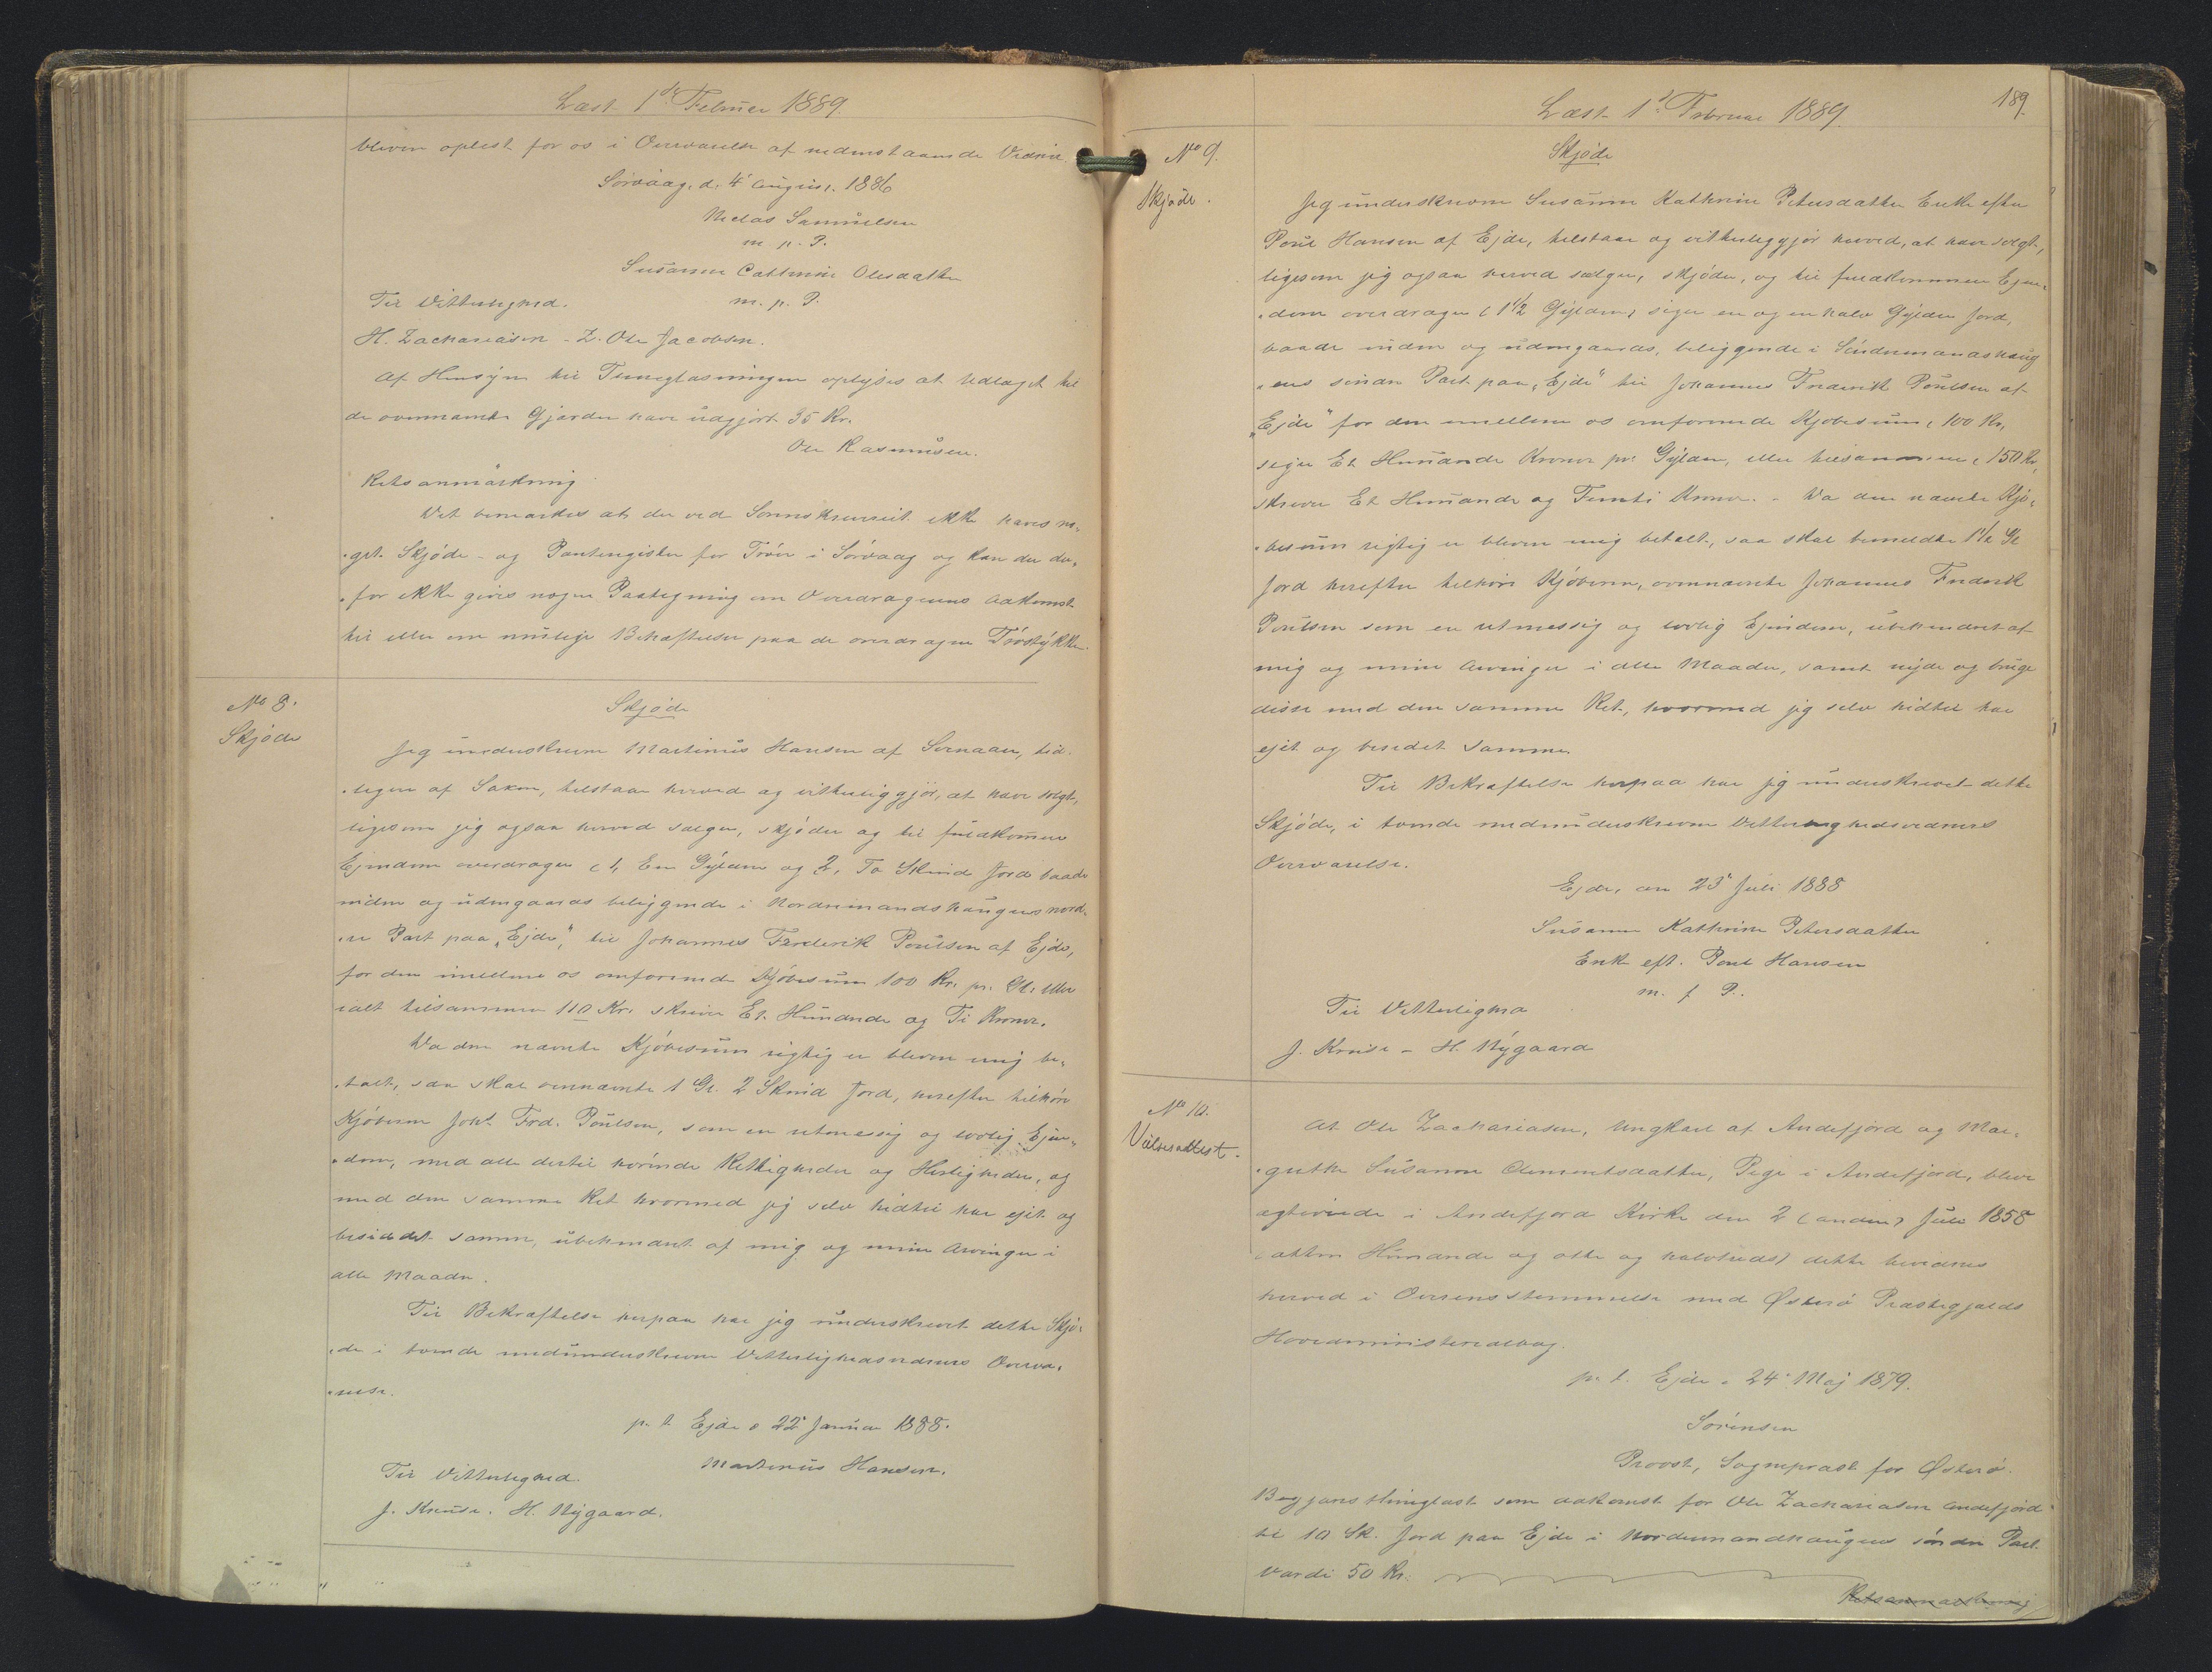 Læst 1ste Februar 1889
bleven oplæst for os i Overværelse af nedenstaaende Vidner.
Sörvaag, d. 4' August. 1886
Niclas Samuelsen
m. p. P.
Susanne Cathrine Olesdatter
Til Vitterlighed. m. p. P.
H. Zachariasen - Z. Ole Jacobsen.
Af Hensyn til Tinglæsningen oplyses at Udlæget til
de ovennævnte Gjærder have udgjort 35 Kr.
Ole Rasmusen.
Retsanmärkning
Det bemærkes at der ved Sorenskriveriet ikke haves no-
get Skjöde- og Panteregister for Tröer i Sörvaag og kan der der-
for ikke gives nogen Paategning om Overdragerens Adkomst
til eller om mulige Behæftelser paa de overdragne Tröstykker.
No 8.
Skjöde
Skjöde
Jeg underskrevne Martinus Hansen af Svinaar, tid-
ligere af Saxen, tilstaar herved og vitterliggjör, at have solgt,
ligesom jeg ogsaa herved sælger, skjöder og til fuldkommen
Ejendom overdrager (1, En Gylden og 2, To Skind Jord baade
inden og udengaards beliggende i Nordremandshaugens nord-
re Part paa "Ejde", til Johannes Frederik Poulsen af Ejde,
for den imellem os omforenede Kjöbesum 100 Kr. pr. Gl. eller
ialt tilsammen 110 Kr. skriver Et Hundrede og Ti Kroner.
Da den nævnte Kjöbesum rigtig er bleven mig be-
talt, saa skal ovennævnte 1 Gl. 2 Skind Jord, herefter tilhöre
Kjöberen Johs. Frd. Poulsen, som en retmessig og lovlig Ejen-
dom, med alle dertil hörende Rettigheder og Herligheder, og
med den samme Ret hvormed jeg selv hidtil har ejet og
besiddet samme, ubehindret af mig og mine Arvinger i
alle Maader.
Til Bekræftelse herpaa har jeg underskrevet dette Skjö-
de i tvende medunderskrevne Vitterlighedsvidners Overvæ-
relse.
p. t. Ejde d 22' Januar 1888.
Martinus Hansen.
Til Vitterlighed.
J. Kruse. H. Nygaard.
Læst 1' Februar 1889.
189.
No 9.
Skjöde.
Skjöde
Jeg underskrevne Susanne Kathrine Petersdatter Enke efter
Poul Hansen af Ejde, tilstaar og vitterliggjör herved, at have solgt,
ligesom jeg ogsaa herved sælger, skjöder, og til fuldkommen Ejen-
dom overdrager (1 1/2 Gylden) siger en og en halv Gylden Jord,
baade inden og udengaards, beliggende i Söndremandshaug
ens söndre Part paa "Ejde" til Johannes Frederik Poulsen af
"Ejde" for den imellem os omforenede Kjöbesum, 100 Kr,
siger Et Hundrede Kroner pr. Gylden, eller tilsammen, 150 Kr,
skriver Et Hundrede og Femti Kroner. - Da den nævnte Kjö-
besum rigtig er bleven mig betalt, saa skal bemeldte 1 1/2 Gl
Jord herefter tilhöre Kjöberen, ovennævnte Johannes Frederik
Poulsen som en retmessig og lovlig Ejendom, ubehindret af
mig og mine Arvinger i alle Maader, samt nyde og bruge
disse med den samme Ret, hvormed jeg selv hidtil har
ejet og besiddet samme.
Til Bekræftelse herpaa har jeg underskrevet dette
Skjöde, i tvende medunderskrevne Vitterlighedsvidners
Overværelse.
Ejde, den 23' Juli 1888
Susanne Kathrine Petersdatter
Enke eft. Poul Hansen
m. f. P..
Til Vitterlighed
J. Kruse - H. Nygaard
No 10.
Vielsesattest.
At Ole Zachariasen, Ungkarl af Andefjord og Mar-
grethe Susanne Clementsdatter, Pige i Andefjord, bleve
ægteviede i Andefjord Kirke den 2 (anden) Juli 1858
(atten Hundrede og otte og halvtreds) dette bevidnes
herved i Overensstemmelse med Østerö Præstegjælds
Hovedministerialbog.
p. t. Ejde d 24' Maj 1879.
Sörensen
Provst, Sognepræst for Østerö.
Begjæres thinglæst som adkomst for Ole Zachariasen Andefjord
til 10 Sk. Jord paa Ejde i Nordremandhaugens söndre Part.
Værdi 50 Kr.
Retsanmærkning